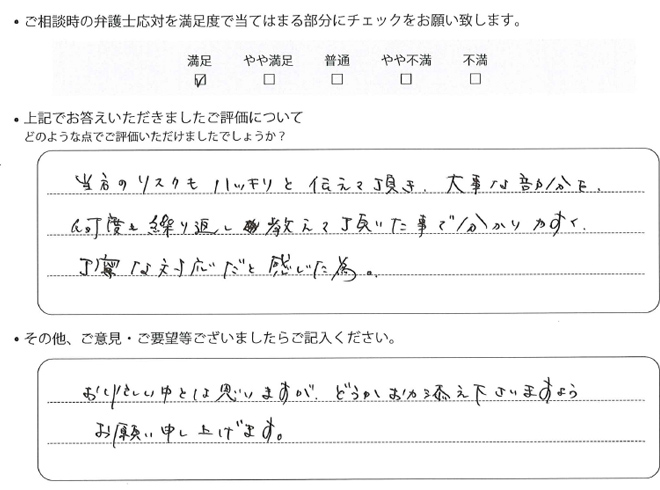 • ご相談時の弁護士応対を満足度で当てはまる部分にチェックをお願い致します。
満足 やや満足 普通 やや不満 不満
• 上記でお答えいただきましたご評価について
どのような点でご評価いただけましたでしょうか？
当方のリスクもハッキリと伝えて頂き、大事な部分を、
何度も繰り返し教えて頂いた事で分かりやすく、
丁寧な対応だと感じた為。
• その他、ご意見・ご要望等ございましたらご記入ください。
お忙しい中とは思いますが、どうかお力添え下さいますよう
お願い申し上げます。